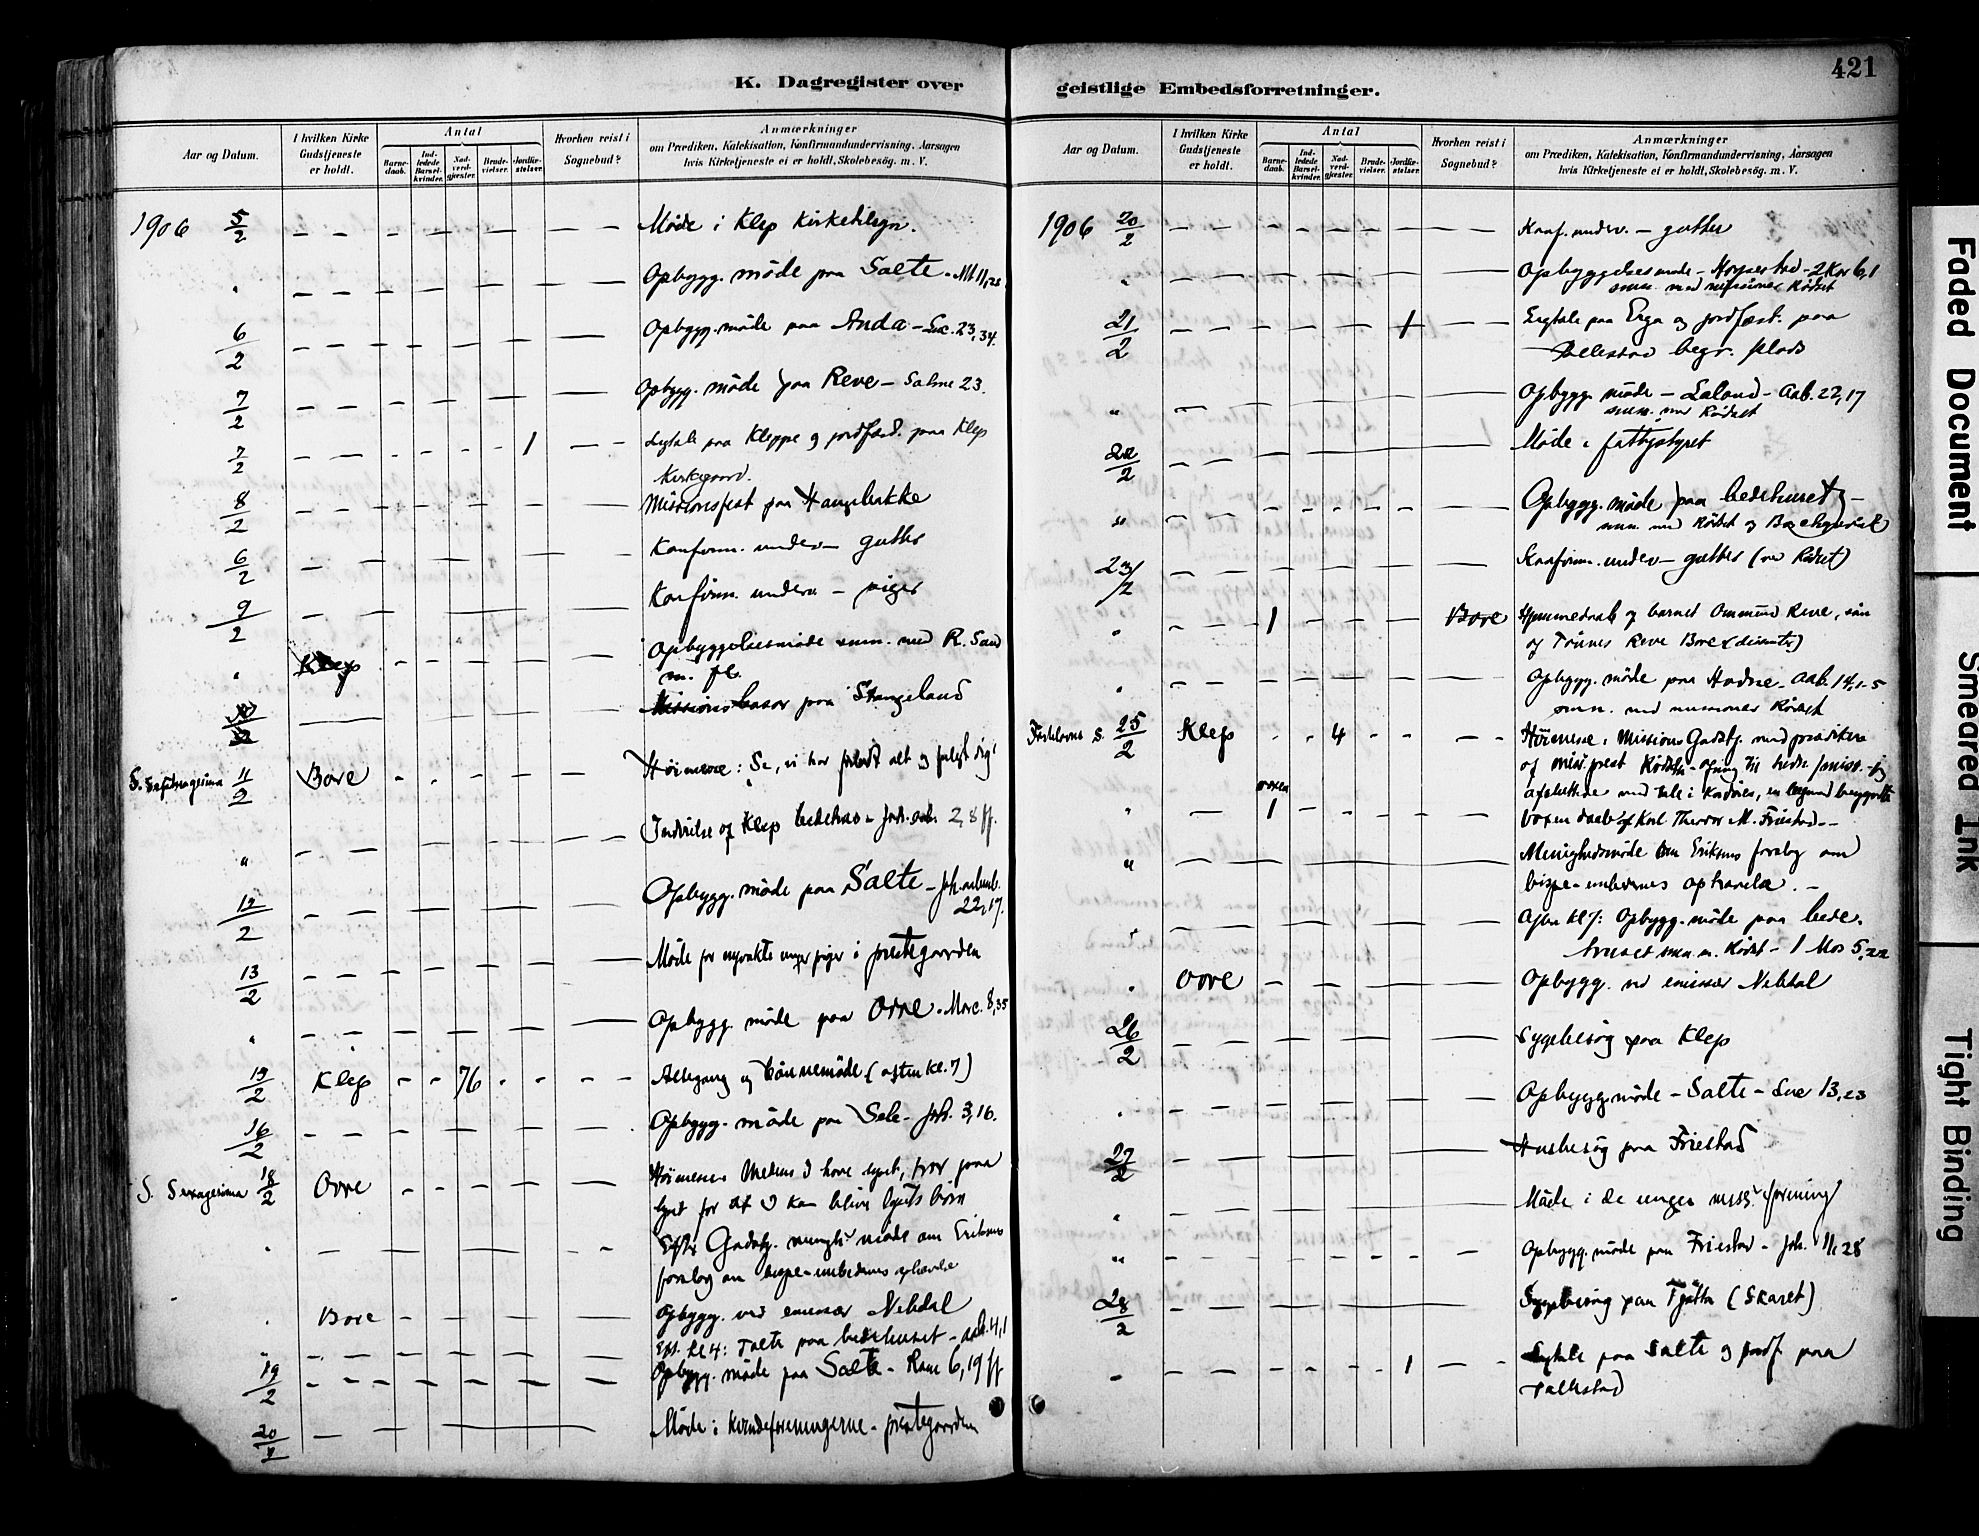 K. Dagregister over
Aar og Datum.
I hvilken Kirke Gudstjeneste er holdt.
Antal
Barne-daab.
Ind-ledede Barsel-kvinder.
Nad-verd-gjæster.
Brude-vielser.
Jordfæ-stelser.
Hvorhen reist i Sognebud?
Anmærkninger
om Prædiken, Katekisation, Konfirmandundervisning, Aarsagen
hvis Kirketjeneste ei er holdt, Skolebesög. m. V.
1906 5/2 Møde i Klep Kirketilsyn.
" Opbygg. møde paa Salte - Mt 11,28
6/2 Opbygg. møde paa Anda - Luc. 23,34
7/2 Opbygg. møde paa Reve - Salme 23.
7/2 1 Ligtale paa Kleppe og jordfæst. paa Klep
Kirkegaard.
8/2 Missionsfest paa Haugebakke
6/2 Konfirm. underv - gutter
9/2 Konfirm. underv - piger
" Klep Opbyggelsesmøde smn. med R. Sand
m. fl.
Missionsbasar paa Stangeland
S. Septuagesima 11/2 Bore Høimesse: Se, vi har forladt alt og fulgt dig
" Indvielse af Klep bedehus - Joh. aab. 2,8 ff.
12/2 Opbygg. møde paa Salte - Joh. aabenb.
22,17.
13/2 Møde for unge piger i prestegaarden
" Opbygg. møde paa Orre - Marc. 8,35
Klep 76 Altergang og bønnemøde (aften kl. 7)
16/2 Opbygg. møde paa Sele - Joh. 3,16.
S. Sexagesima 18/2 Orre Høimesse Medens I have lyset, tror paa
lyset for at I kan blive lysets børn
" Efter Gudstj. møde om Eriksens
forslag om bispe-embedernes ophævelse
" Bore Opbygg. ved emissær Nebdal
" Eft. kl 4: Tale paa bedehuset - 4,1
19/2 Opbygg. møde paa Salte - Rom 6,19 ff
20/2 Møde i Kvindeforeningerne - prestegaarden
421
geistlige Embedsforretninger.
Aar og Datum.
I hvilken Kirke Gudstjeneste er holdt.
Antal
Barne-daab.
Ind-ledede Barsel-kvinder.
Nad-verd-gjæster.
Brude-vielser.
Jordfæ-stelser.
Hvorhen reist i Sognebud?
Anmærkninger
om Prædiken, Katekisation, Konfirmandundervisning, Aarsagen
hvis Kirketjeneste ei er holdt, Skolebesög. m. V.
1906 20/2 Konf. underv. - gutter
" Opbyggelsesmøde - Horpestad - 2 Kor 6,1
smn. med missionær Rödset
21/2 1 Ligtale paa Erga og jordfæst. paa
begr. plads
" Opbygg. møde - Laland - Aab. 22,17
smn. med Rödset
22/2 Møde i fattigstyret
" Opbygg. møde paa bedehuset -
smn. med Rödset og
23/2 Konfirm. underv - gutter (ved Rödset)
" 1 Bore Hjemmedaab af barnet Ommund Reve, søn
af Tønnes Reve Bore
" Opbygg. møde paa Hodne - Aab. 14,1-5
smn. med missionær Rödset
Fastelavns S. 25/2 Klep 4 Høimesse. Missions Gudstj. med prædiken
af miss.prest
afsluttede med tale i
" voxen 1 Voxen daab af Karl Theodor M. Friestad -
" Menighedsmøde om Eriksens forslag om
bispe-embedernes ophævelse. -
" Aften kl 7: Opbygg. møde paa bede-
huset smn. m. Rödset - 1 Mos 5,22
" Orre Opbygg. ved emissær Nebdal
26/2 Sygebesøg paa Klep
" Opbygg. møde - Salte - Luc 13,23
27/2 Husbesøg paa Friestad
" Møde i de unges miss. forening
" Opbygg. møde paa Friestad - Joh. 11,28
28/2 Sygebesøg paa Tjøtta (Skaret)
" 1 Ligtale paa Salte og jordf paa
Faded Document
Smeared Ink
Tight Binding